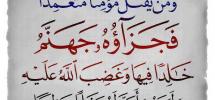 ومن يقتل مؤمنا متعمدا
فَجَزَآؤُهُ جَهَنَّمُ
خَالِدًا فِيهَا وَغَضِبَ اللَّهُ عَلَيْهِ